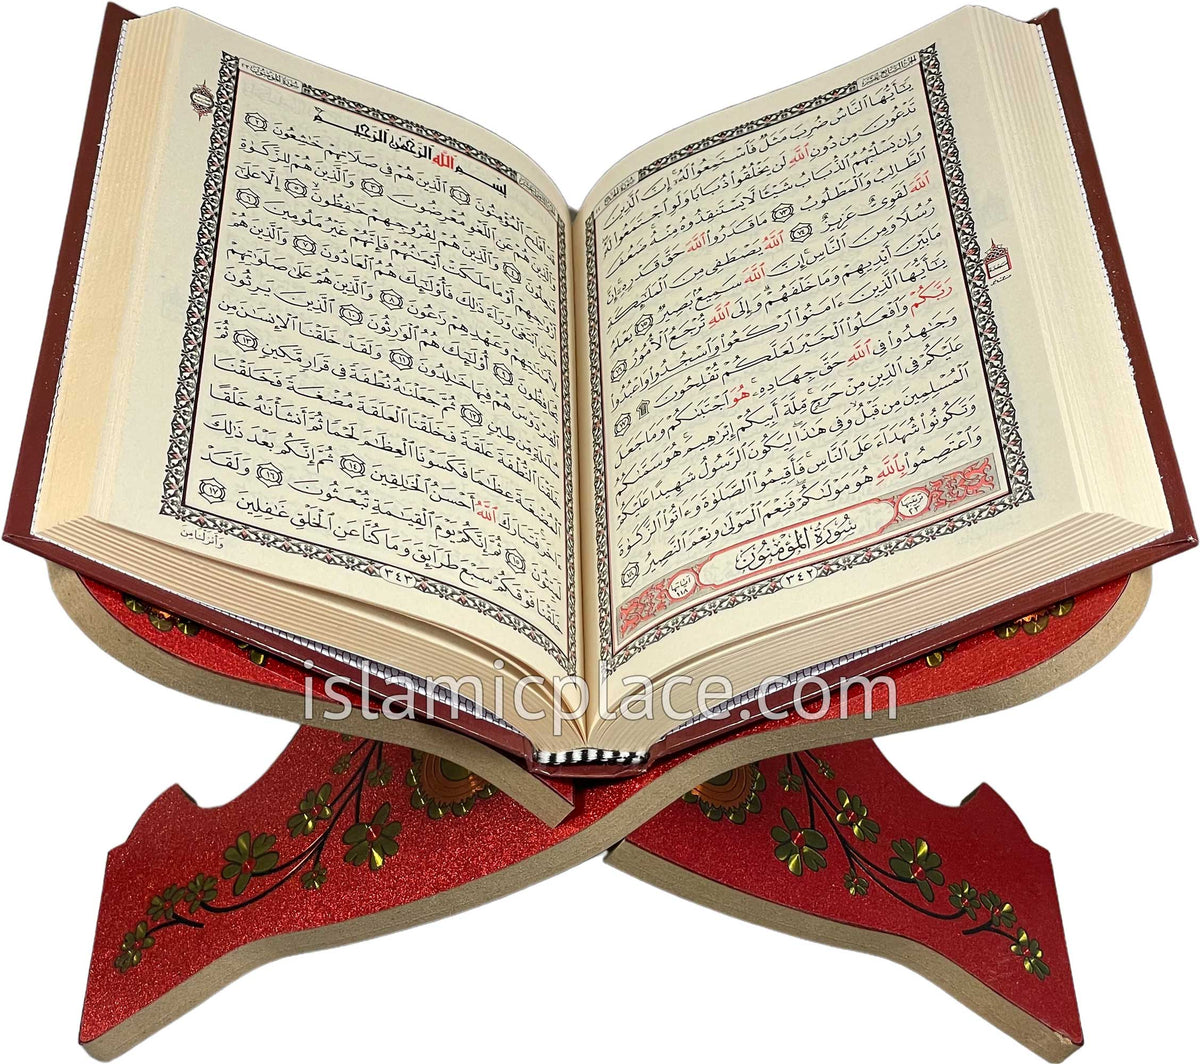 الجزء السابع عشر
يَٰٓأَيُّهَا ٱلنَّاسُ ضُرِبَ مَثَلٌ فَٱسْتَمِعُوا۟ لَهُۥٓ إِنَّ ٱلَّذِينَ
تَدْعُونَ مِن دُونِ ٱللَّهِ لَن يَخْلُقُوا۟ ذُبَابًا وَلَوِ ٱجْتَمَعُوا۟ لَهُۥ
وَإِن يَسْلُبْهُمُ ٱلذُّبَابُ شَيْـًٔا لَّا يَسْتَنقِذُوهُ مِنْهُ ضَعُفَ
ٱلطَّالِبُ وَٱلْمَطْلُوبُ ٧٣ مَا قَدَرُوا۟ ٱللَّهَ حَقَّ قَدْرِهِۦٓ إِنَّ
ٱللَّهَ لَقَوِىٌّ عَزِيزٌ ٧٤ ٱللَّهُ يَصْطَفِى مِنَ ٱلْمَلَٰٓئِكَةِ
رُسُلًا وَمِنَ ٱلنَّاسِ إِنَّ ٱللَّهَ سَمِيعٌۢ بَصِيرٌ ٧٥ يَعْلَمُ
مَا بَيْنَ أَيْدِيهِمْ وَمَا خَلْفَهُمْ وَإِلَى ٱللَّهِ تُرْجَعُ ٱلْأُمُورُ ٧٦
يَٰٓأَيُّهَا ٱلَّذِينَ ءَامَنُوا۟ ٱرْكَعُوا۟ وَٱسْجُدُوا۟ وَٱعْبُدُوا۟
رَبَّكُمْ وَٱفْعَلُوا۟ ٱلْخَيْرَ لَعَلَّكُمْ تُفْلِحُونَ ۩ ٧٧
وَجَٰهِدُوا۟ فِى ٱللَّهِ حَقَّ جِهَادِهِۦ هُوَ ٱجْتَبَىٰكُمْ وَمَا جَعَلَ
عَلَيْكُمْ فِى ٱلدِّينِ مِنْ حَرَجٍ مِّلَّةَ أَبِيكُمْ إِبْرَٰهِيمَ هُوَ سَمَّىٰكُمُ
ٱلْمُسْلِمِينَ مِن قَبْلُ وَفِى هَٰذَا لِيَكُونَ ٱلرَّسُولُ شَهِيدًا عَلَيْكُمْ
وَتَكُونُوا۟ شُهَدَآءَ عَلَى ٱلنَّاسِ فَأَقِيمُوا۟ ٱلصَّلَوٰةَ وَءَاتُوا۟ ٱلزَّكَوٰةَ
وَٱعْتَصِمُوا۟ بِٱللَّهِ هُوَ مَوْلَىٰكُمْ فَنِعْمَ ٱلْمَوْلَىٰ وَنِعْمَ ٱلنَّصِيرُ ٧٨
ترتيبها ٢٣ سُورَةُ الْمُؤْمِنُونَ آياتها ١١٨
٣٤٢
سورة المؤمنون ٢٣
بِسْمِ ٱللَّهِ ٱلرَّحْمَٰنِ ٱلرَّحِيمِ
قَدْ أَفْلَحَ ٱلْمُؤْمِنُونَ ١ ٱلَّذِينَ هُمْ فِى صَلَاتِهِمْ خَٰشِعُونَ ٢
وَٱلَّذِينَ هُمْ عَنِ ٱللَّغْوِ مُعْرِضُونَ ٣ وَٱلَّذِينَ هُمْ لِلزَّكَوٰةِ
فَٰعِلُونَ ٤ وَٱلَّذِينَ هُمْ لِفُرُوجِهِمْ حَٰفِظُونَ ٥ إِلَّا عَلَىٰٓ
أَزْوَٰجِهِمْ أَوْ مَا مَلَكَتْ أَيْمَٰنُهُمْ فَإِنَّهُمْ غَيْرُ مَلُومِينَ ٦
فَمَنِ ٱبْتَغَىٰ وَرَآءَ ذَٰلِكَ فَأُو۟لَٰٓئِكَ هُمُ ٱلْعَادُونَ ٧ وَٱلَّذِينَ هُمْ
لِأَمَٰنَٰتِهِمْ وَعَهْدِهِمْ رَٰعُونَ ٨ وَٱلَّذِينَ هُمْ عَلَىٰ صَلَوَٰتِهِمْ
يُحَافِظُونَ ٩ أُو۟لَٰٓئِكَ هُمُ ٱلْوَٰرِثُونَ ١٠ ٱلَّذِينَ يَرِثُونَ
ٱلْفِرْدَوْسَ هُمْ فِيهَا خَٰلِدُونَ ١١ وَلَقَدْ خَلَقْنَا ٱلْإِنسَٰنَ مِن
سُلَٰلَةٍ مِّن طِينٍ ١٢ ثُمَّ جَعَلْنَٰهُ نُطْفَةً فِى قَرَارٍ مَّكِينٍ ١٣ ثُمَّ
خَلَقْنَا ٱلنُّطْفَةَ عَلَقَةً فَخَلَقْنَا ٱلْعَلَقَةَ مُضْغَةً فَخَلَقْنَا
ٱلْمُضْغَةَ عِظَٰمًا فَكَسَوْنَا ٱلْعِظَٰمَ لَحْمًا ثُمَّ أَنشَأْنَٰهُ خَلْقًا
ءَاخَرَ فَتَبَارَكَ ٱللَّهُ أَحْسَنُ ٱلْخَٰلِقِينَ ١٤ ثُمَّ إِنَّكُم بَعْدَ ذَٰلِكَ
لَمَيِّتُونَ ١٥ ثُمَّ إِنَّكُمْ يَوْمَ ٱلْقِيَٰمَةِ تُبْعَثُونَ ١٦ وَلَقَدْ
خَلَقْنَا فَوْقَكُمْ سَبْعَ طَرَآئِقَ وَمَا كُنَّا عَنِ ٱلْخَلْقِ غَٰفِلِينَ ١٧
٣٤٣
وأنزلنا من
islamicplace.com